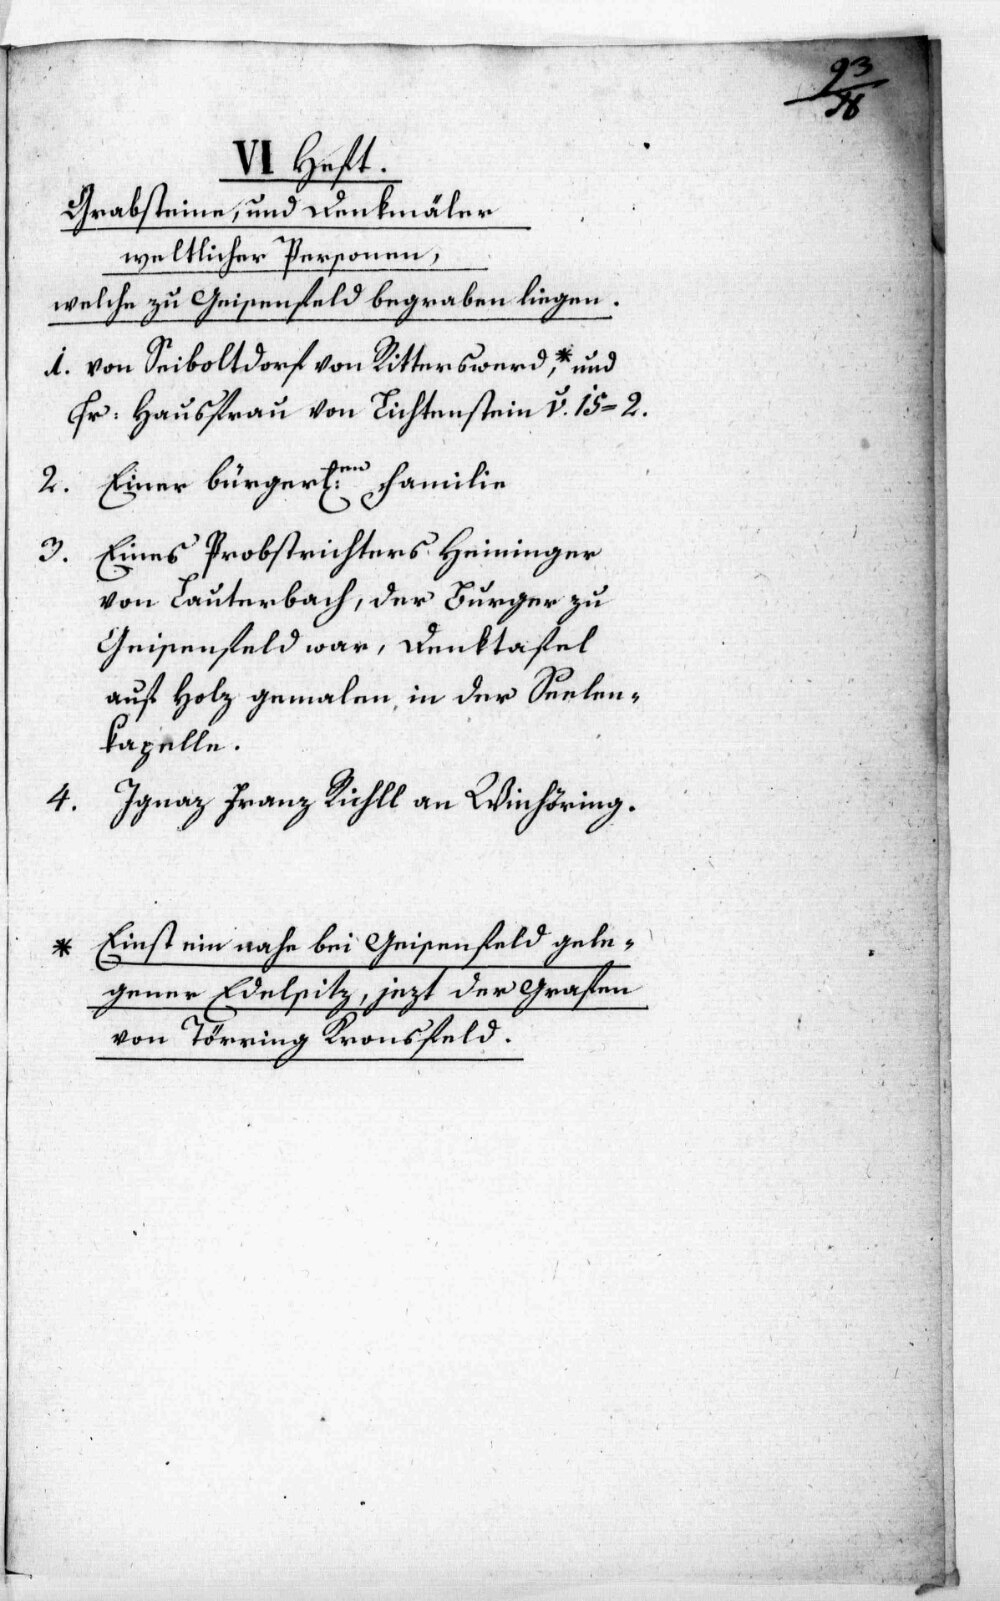 93
VI Heft.
Grabsteine, und Denkmäler
weltlicher Personen,
welche zu Geisenfeld begraben liegen.
1. von Seiboltdorf von Ritterswerd,* und
Fr: Hausfrau von Lichtenstein v. 15=2.
2. Einer bürgerl:en Familie
3. Eines Probstrichters Heininger
von Lauterbach, der Burger zu
Geisenfeld war, Denktafel
auf Holz gemalen, in der Seelen-
kapelle.
4. Ignaz Franz Richll an Winhöring.
* Einst ein nahe bei Geisenfeld gele-
gener Edelsitz, jezt der Grafen
von Törring Kronsfeld.